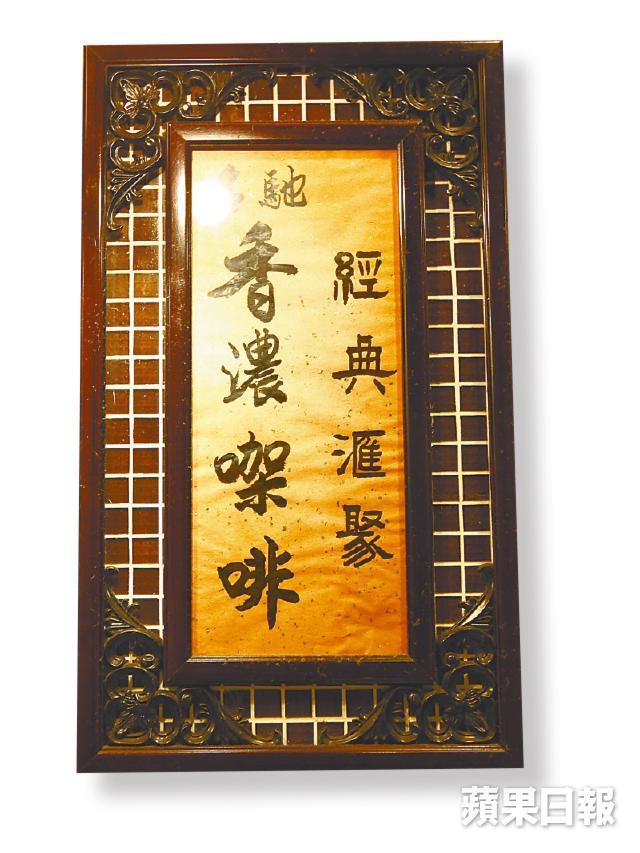 馳名
經典滙聚
香濃㗎啡
蘋果日報